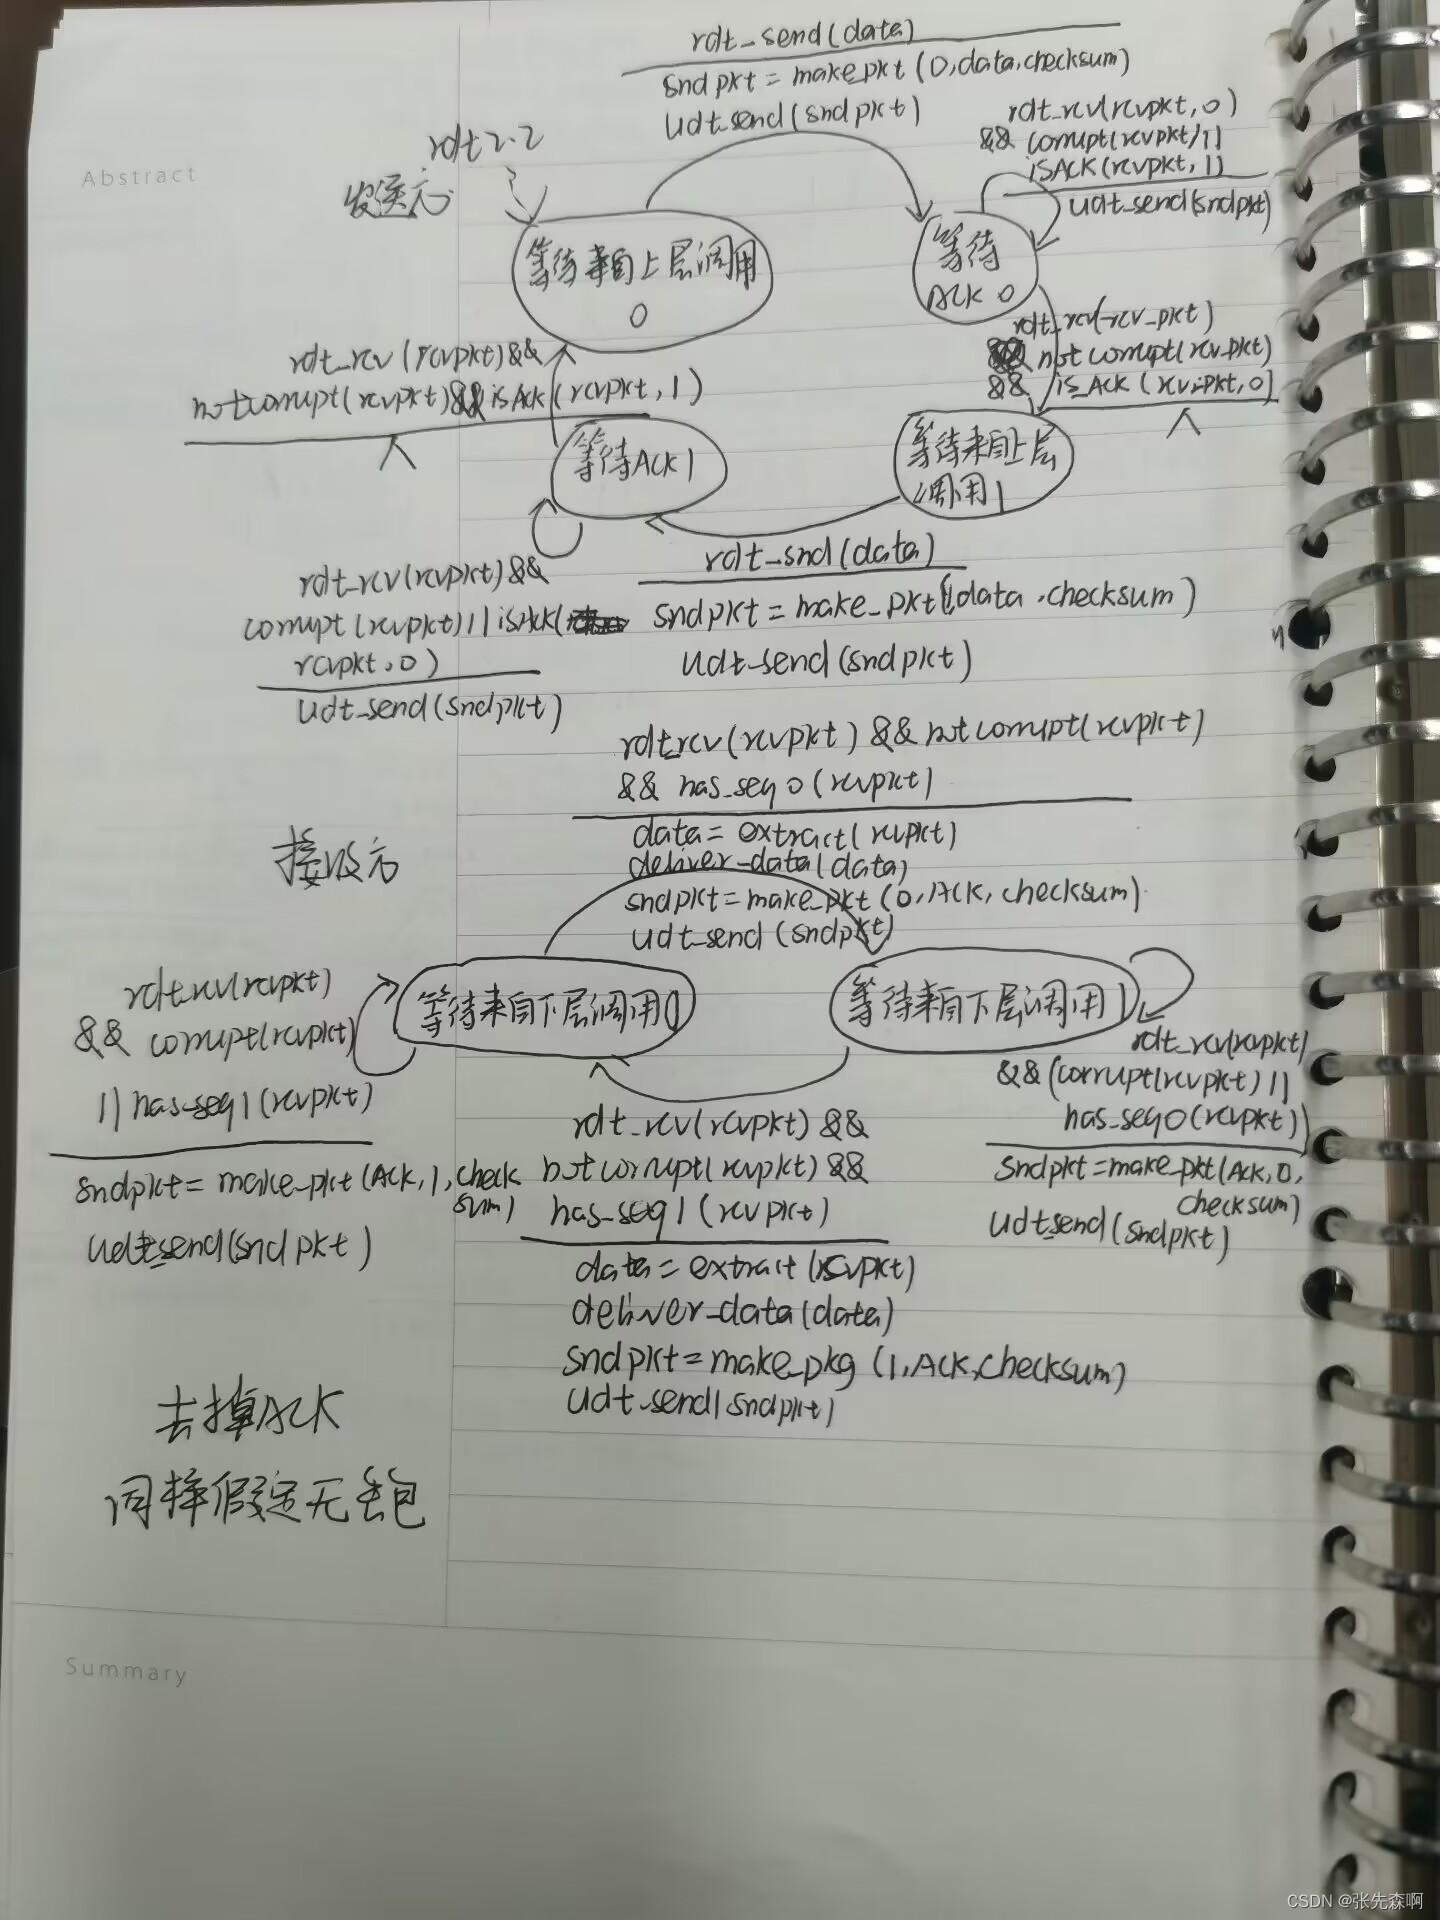 rdt_send(data)
sndpkt = make_pkt (0,data,checksum)
udt_send(sndpkt)
Abstract
rdt2.2
发送方
rdt_rcv(rcvpkt,0)
&& corrupt(rcvpkt)||
isACK(rcvpkt,1)
udt_send(sndpkt)
等待来自上层调用
0
等待
ACK 0
rdt_rcv(rcv_pkt)
&& not corrupt(rcv_pkt)
&& is_ACK (rcv_pkt,0)
Λ
rdt_rcv (rcvpkt) &&
notcorrupt(rcvpkt)&&isAck(rcvpkt,1)
Λ
等待ACK1
等待来自上层
调用1
rdt_snd(data)
sndpkt = make_pkt(1data,checksum)
udt_send(sndpkt)
rdt_rcv(rcvpkt) &&
corrupt(rcvpkt)||isAck(
rcvpkt,0)
udt_send(sndpkt)
rdtrcv(rcvpkt) && not corrupt(rcvpkt)
&& has_seq0(rcvpkt)
data = extract(rcvpkt)
deliver-data(data)
sndpkt=make_pkt(0,ACK,checksum)
udt_send(sndpkt)
接收方
等待来自下层调用0
等待来自下层调用1
rdt_rcv(rcvpkt)
&& corrupt(rcvpkt)
|| has_seq1(rcvpkt)
sndpkt = make_pkt(Ack,1,check
sum)
udt_send(sndpkt)
rdt_rcv(rcvpkt) &&
notcorrupt(rcvpkt) &&
has_seq1(rcvpkt)
data = extract(rcvpkt)
deliver_data(data)
sndpkt=make_pkg (1,ACK,checksum)
udt_send(sndpkt)
rdt_rcv(rcvpkt)
&&(corrupt(rcvpkt)||
has_seq0(rcvpkt))
sndpkt=make_pkt(Ack,0,
checksum)
udt_send(sndpkt)
去掉ACK
同样假定无丢包
Summary
CSDN @张先森啊